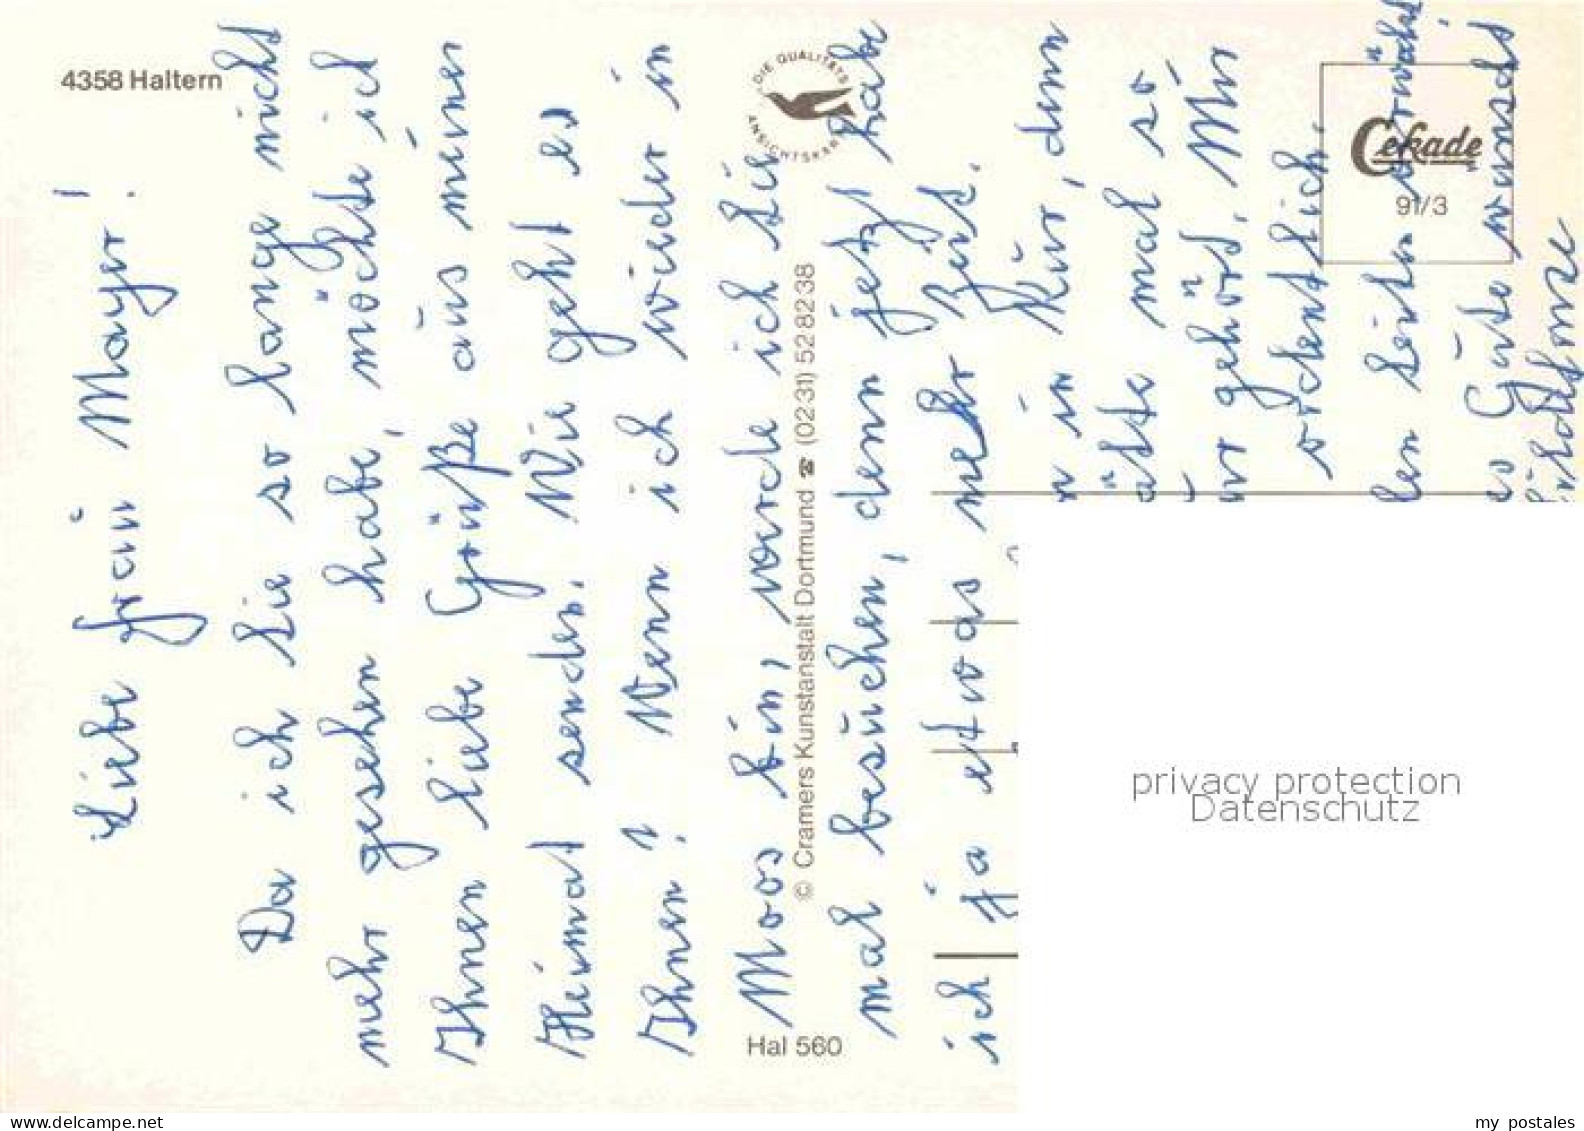 4358 Haltern
DIE QUALITÄTS
ANSICHTSKARTE
Cekade
91/3
© Cramers Kunstanstalt Dortmund ☎ (0231) 528238
Hal 560
Liebe Frau Mayer!
Da ich Sie so lange nicht
mehr gesehen habe, möchte ich
Ihnen liebe Grüße aus meiner
Heimat senden. Wie geht es
Ihnen? Wenn ich wieder in
Moos bin, werde ich Sie
mal besuchen, denn jetzt habe
ich ja etwas mehr Zeit.
in Kur, denn
mal so
gehört. Mir
ordentlich.
Seiten
es Gute wünscht
privacy protection
Datenschutz
www.delcampe.net
my_postales